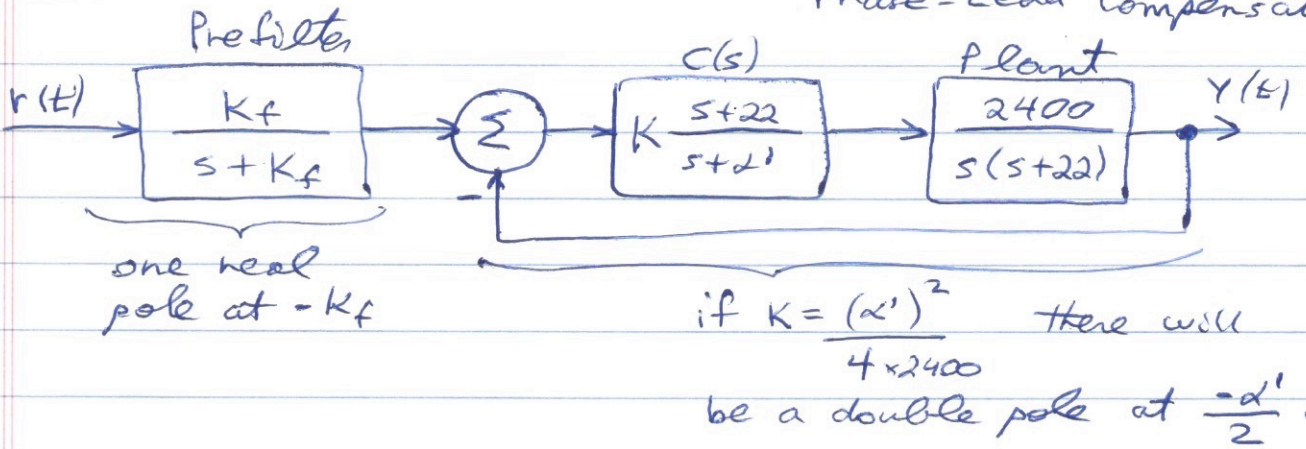 Phase-Lead
Prefilter
C(s)
Plant
r(t)
K_f
s + K_f
Σ
-
K s+22
s+α'
2400
s(s+22)
Y(t)
one real
pole at -K_f
if K = (α')²
4×2400
there will
be a double pole at -α'
2